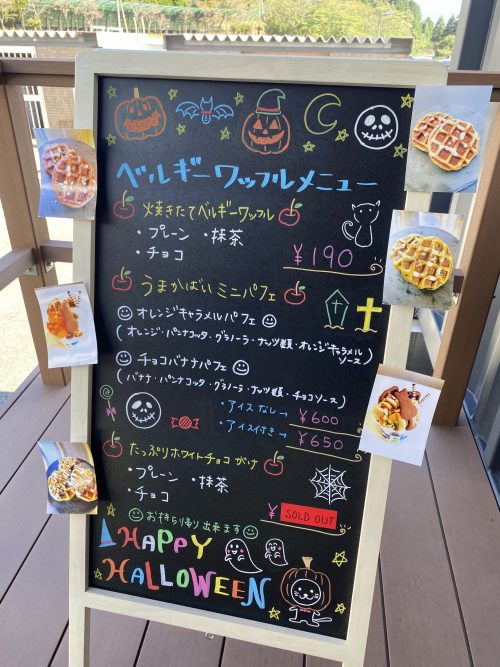 ベルギーワッフルメニュー
焼きたてベルギーワッフル
・プレーン ・抹茶
・チョコ
¥190
うまかばい ミニパフェ
オレンジキャラメルパフェ
(オレンジ・パンナコッタ・グラノーラ・ナッツ類・オレンジキャラメルソース)
チョコバナナパフェ
(バナナ・パンナコッタ・グラノーラ・ナッツ類・チョコソース)
・アイスなし→ ¥600
・アイス付き→ ¥650
たっぷりホワイトチョコがけ
・プレーン ・抹茶
・チョコ
¥ SOLD OUT
お持ち帰り出来ます
HAPPY
HALLOWEEN